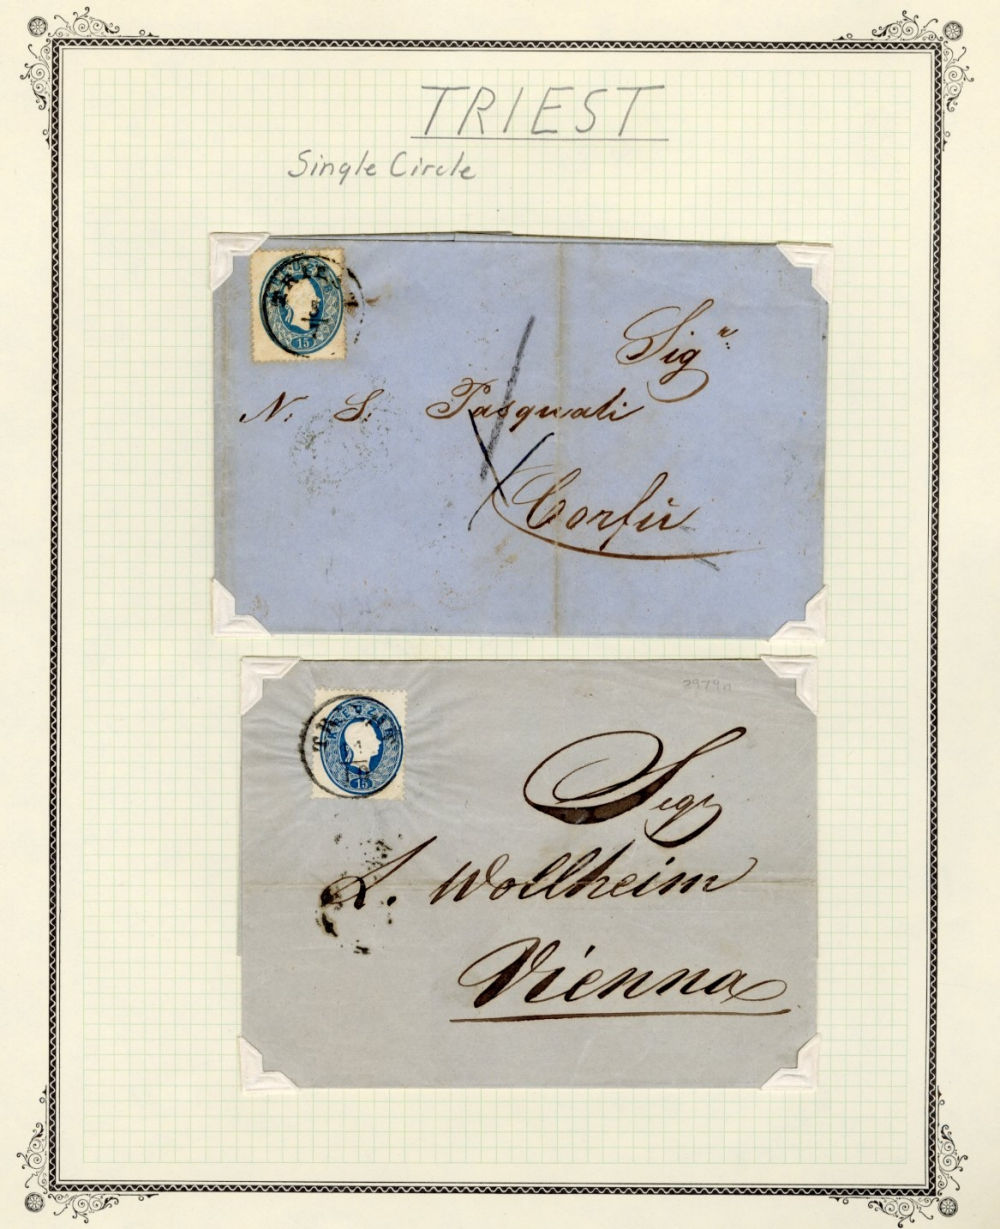 TRIEST
Single Circle
15
Sigr
N. S. Pasquali
Corfù
2979n
KREUZER
15
Sigr
L. Wollheim
Vienna